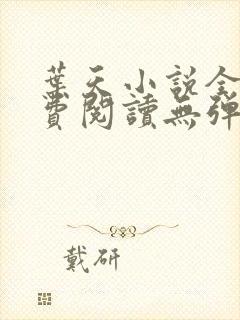 葉天小說全
費閱讀無彈
戴研